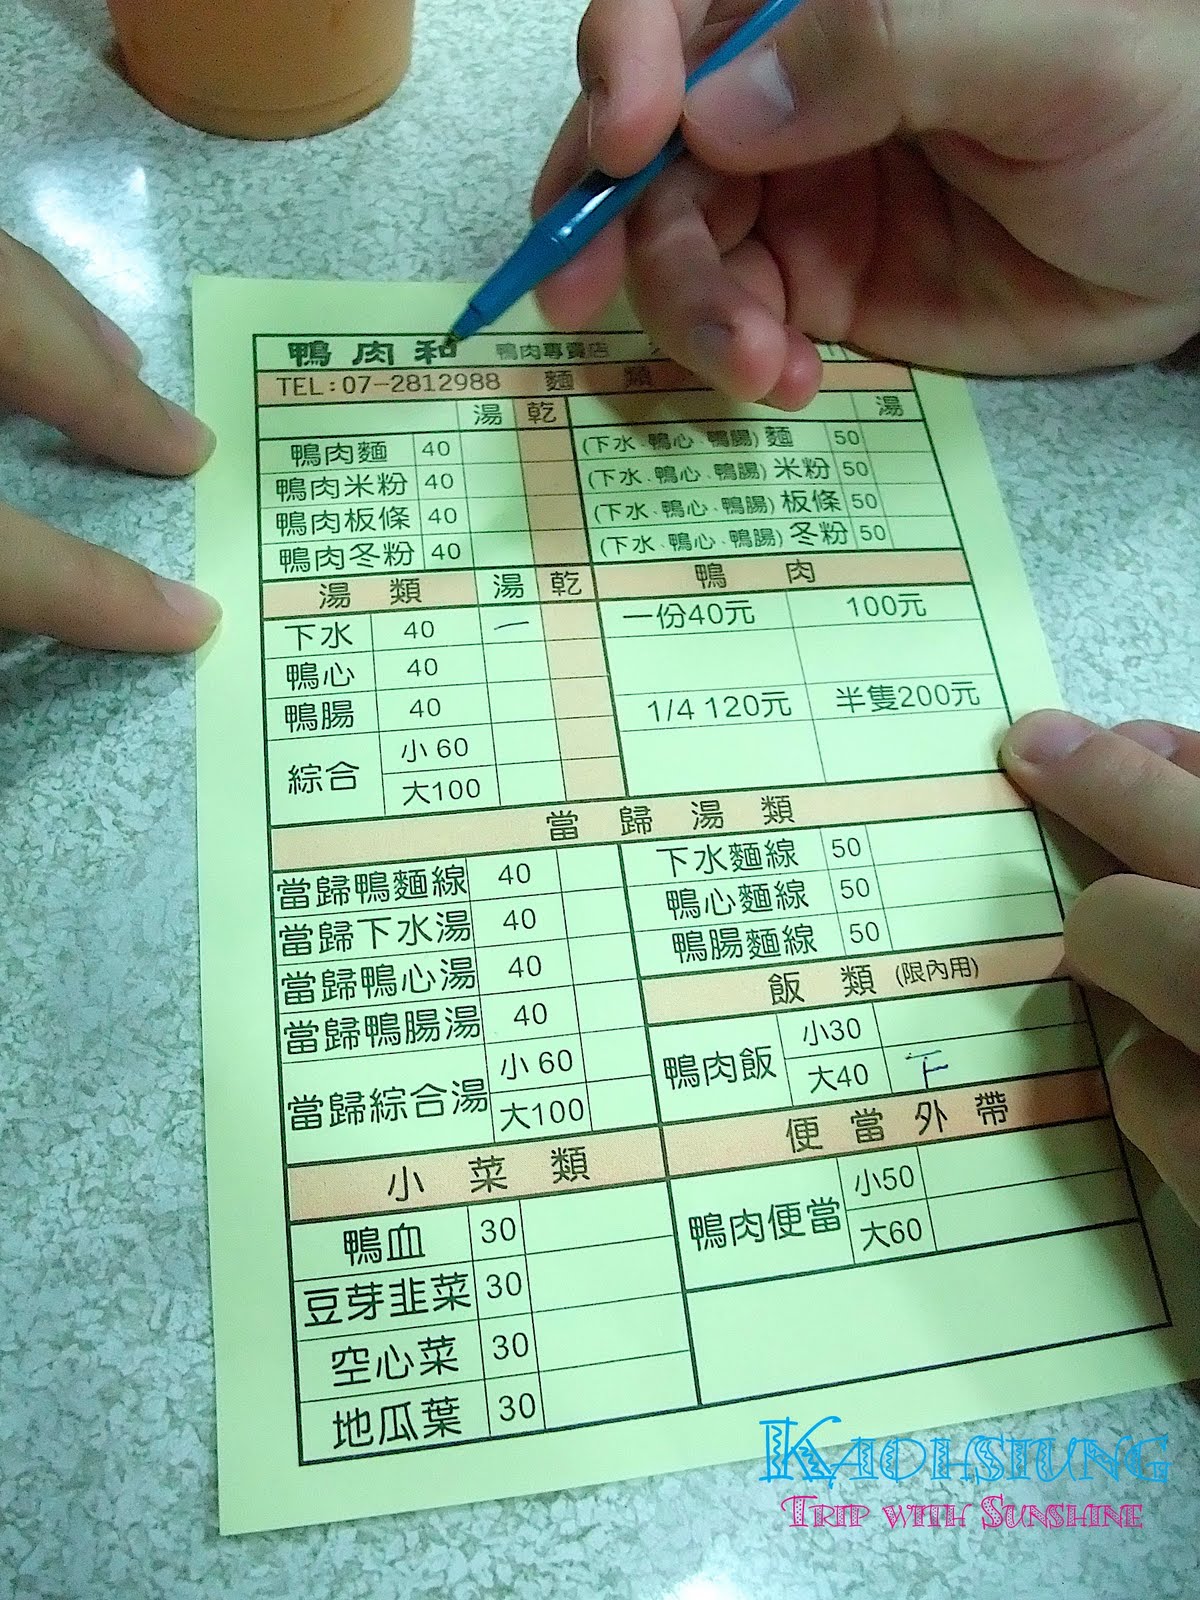 鴨肉和 鴨肉專賣店
TEL:07-2812988 麵 類
湯 乾 湯
鴨肉麵 40 (下水、鴨心、鴨腸) 麵 50
鴨肉米粉 40 (下水、鴨心、鴨腸) 米粉 50
鴨肉板條 40 (下水、鴨心、鴨腸) 板條 50
鴨肉冬粉 40 (下水、鴨心、鴨腸) 冬粉 50
湯 類 湯 乾 鴨 肉
下水 40 一 一份40元 100元
鴨心 40
鴨腸 40 1/4 120元 半隻200元
綜合 小 60
大100
當 歸 湯 類
當歸鴨麵線 40 下水麵線 50
當歸下水湯 40 鴨心麵線 50
當歸鴨心湯 40 鴨腸麵線 50
當歸鴨腸湯 40 飯 類 (限內用)
當歸綜合湯 小 60 鴨肉飯 小30
大100 大40 下
小 菜 類 便 當 外 帶
鴨血 30 鴨肉便當 小50
豆芽韭菜 30 大60
空心菜 30
地瓜葉 30
Kaohsiung
Trip with Sunshine